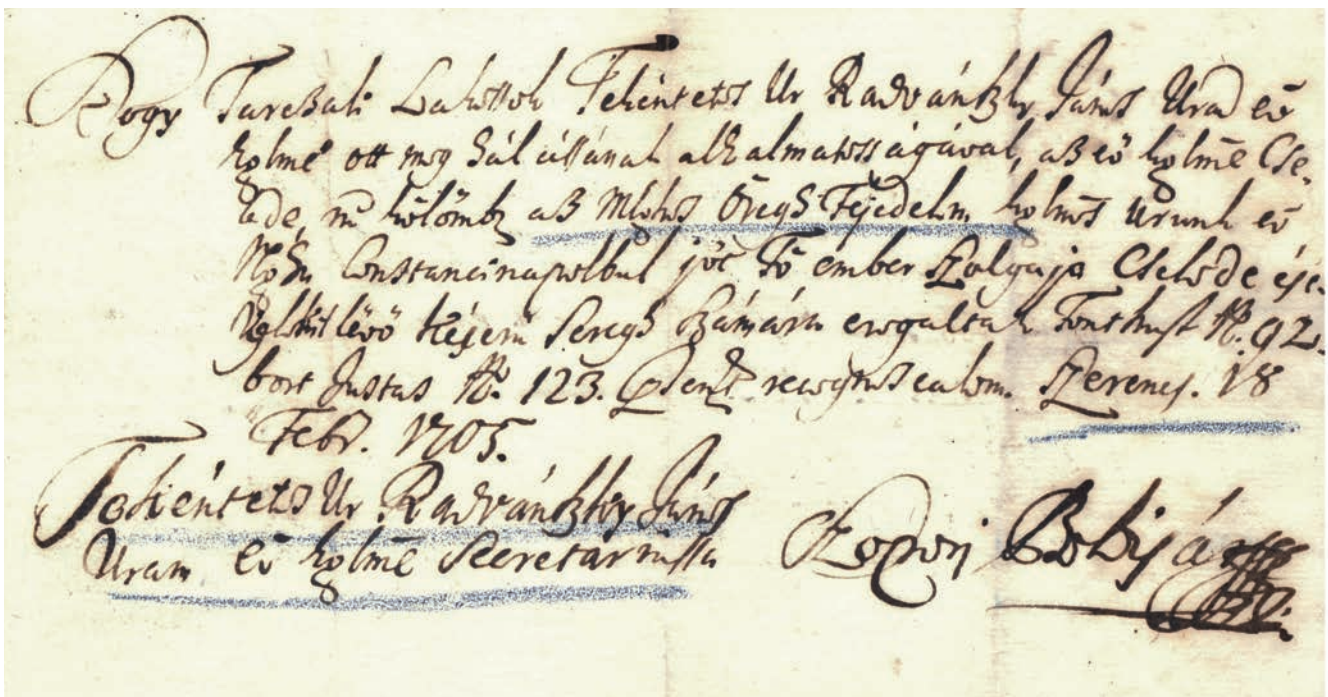 Hogy Tarczali Lakossok Tekéntetes Ur Radvánszky János Urad eő
kglmē ott meg hál állának alkalmatosságával, az eő kglmē Cse,
léde, nē külömb az Mlgos Öregb Fejedelm kglmes Urunk eő
Nga Constancinapolbul jöt Fő ember Szolgaja Cselede
lévő Seregh számára erogaltak Font hust N. 92.
bort Justas N. 123. recognoscalom. Szerencs. 18
Febr. 1705.
Tekéntetes Ur Radvánszky János
Uram eő kglmē Secretariussa